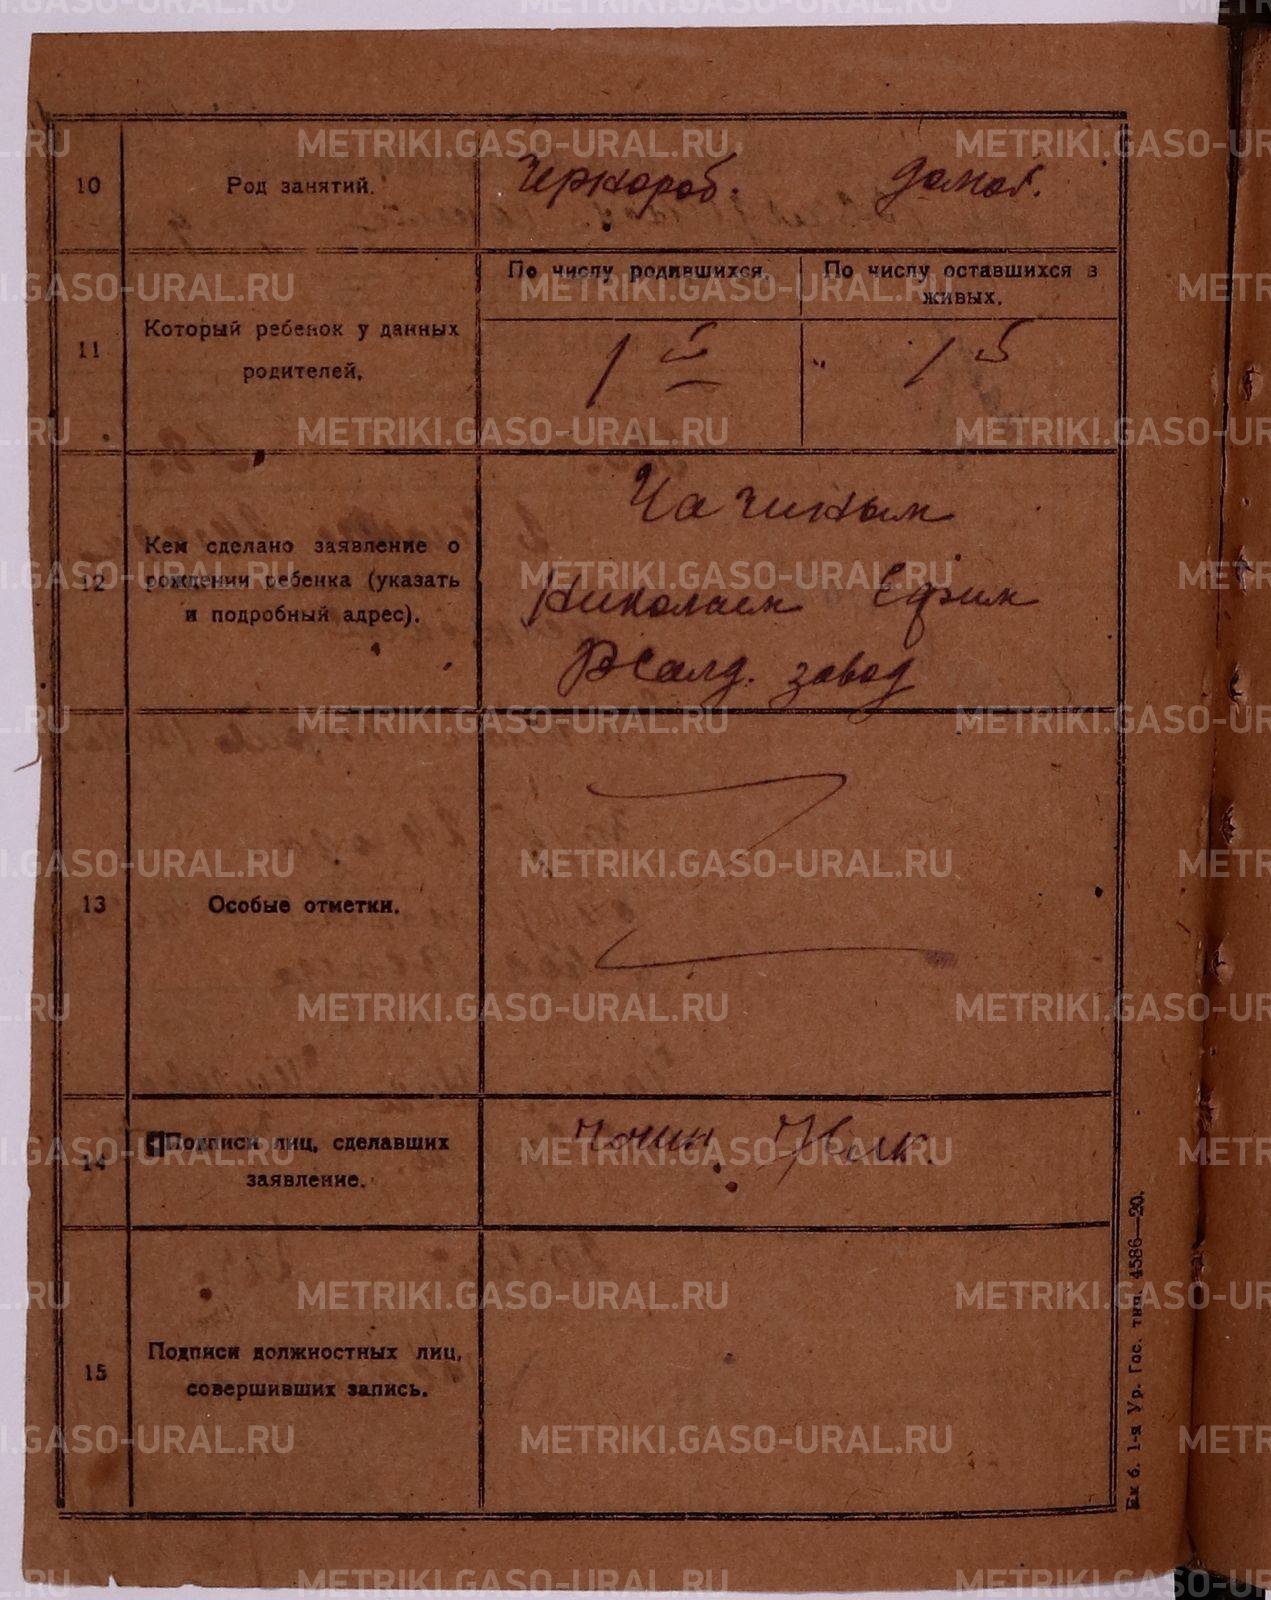 10
Род занятий.
Чернораб. домох.
11
Который ребенок у данных
родителей.
По числу родившихся.
По числу оставшихся в
живых.
1й
" 1й
12
Кем сделано заявление о
рождении ребенка (указать
и подробный адрес).
Чагиным
Николаем Ефим
ВСалд. завод
13
Особые отметки.
14
Подписи лиц, сделавших
заявление.
15
Подписи должностных лиц,
совершивших запись.
Ек б. 1-я Ур. Гос. тип. 4586—20.
METRIKI.GASO-URAL.RU